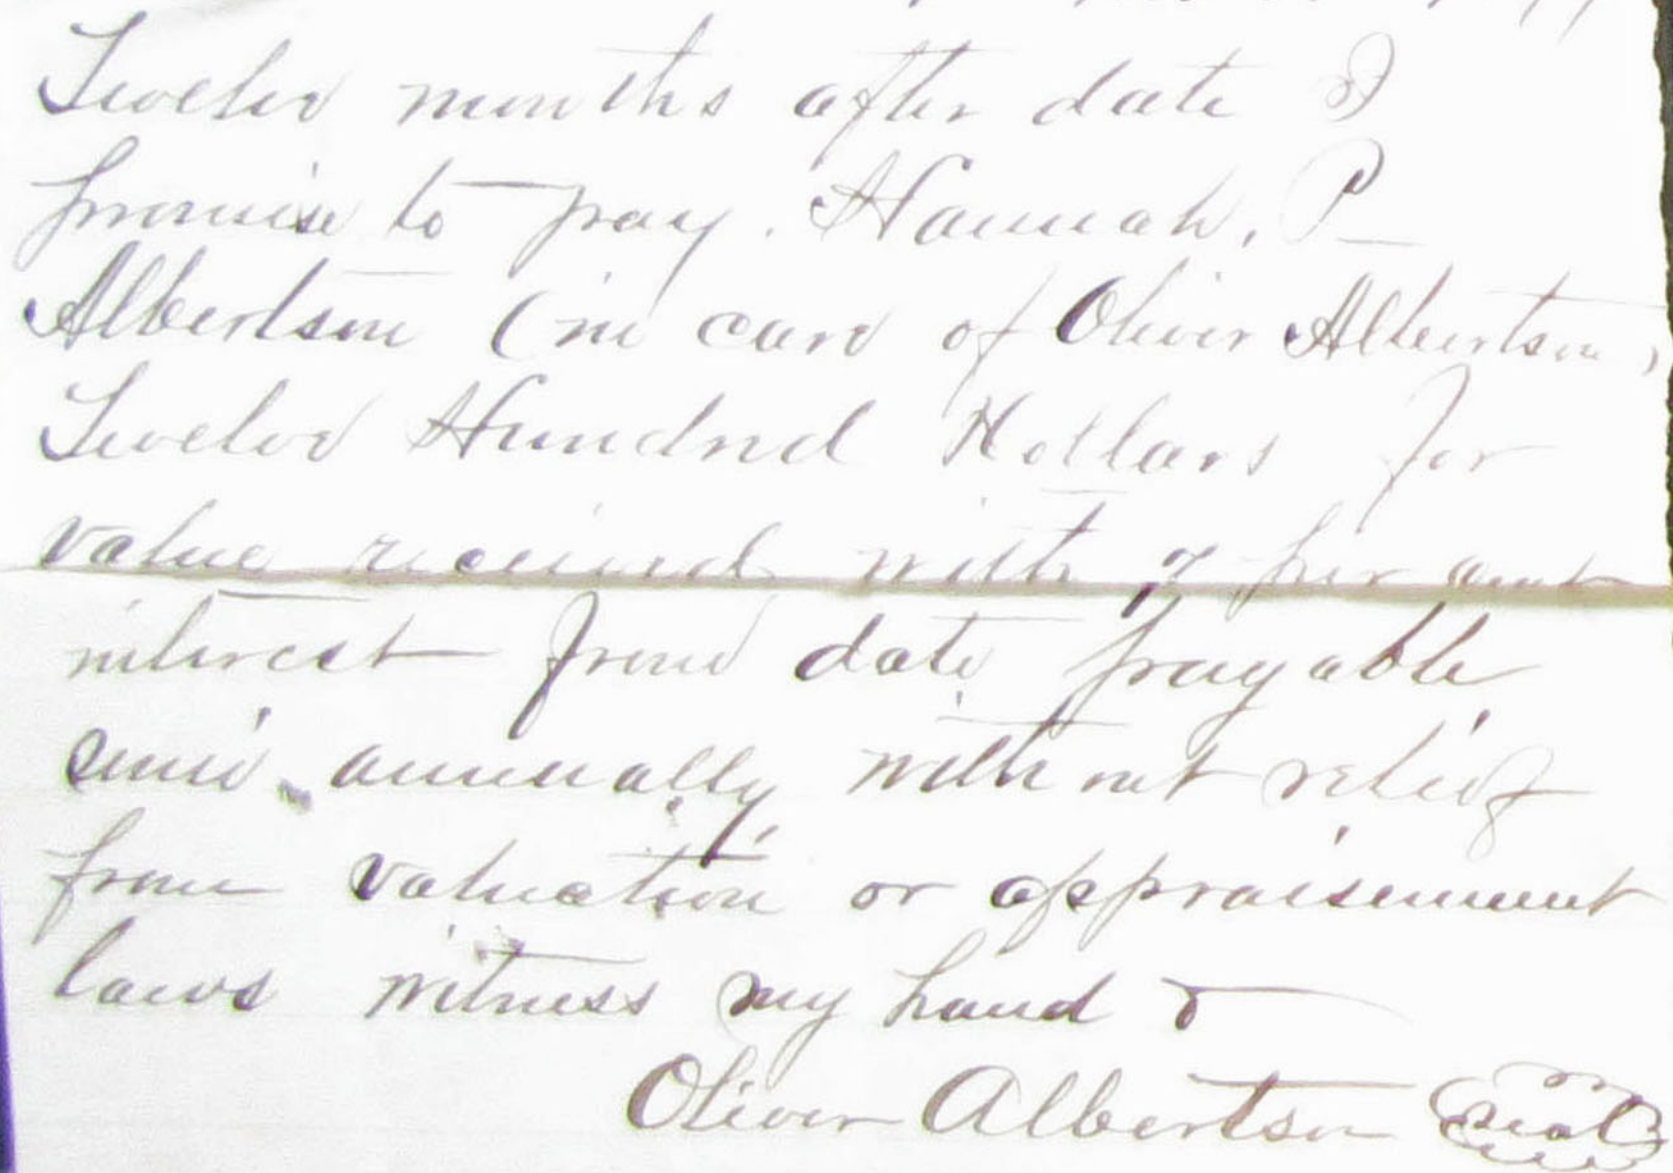 Twelve months after date I
promise to pay. Hannah. P
Albertson (in care of Oliver Albertson)
Twelve Hundred Dollars for
value received with per cent
interest from date payable
semi-annually without relief
from valuation or appraisement
laws witness my hand &
Oliver Albertson Seal